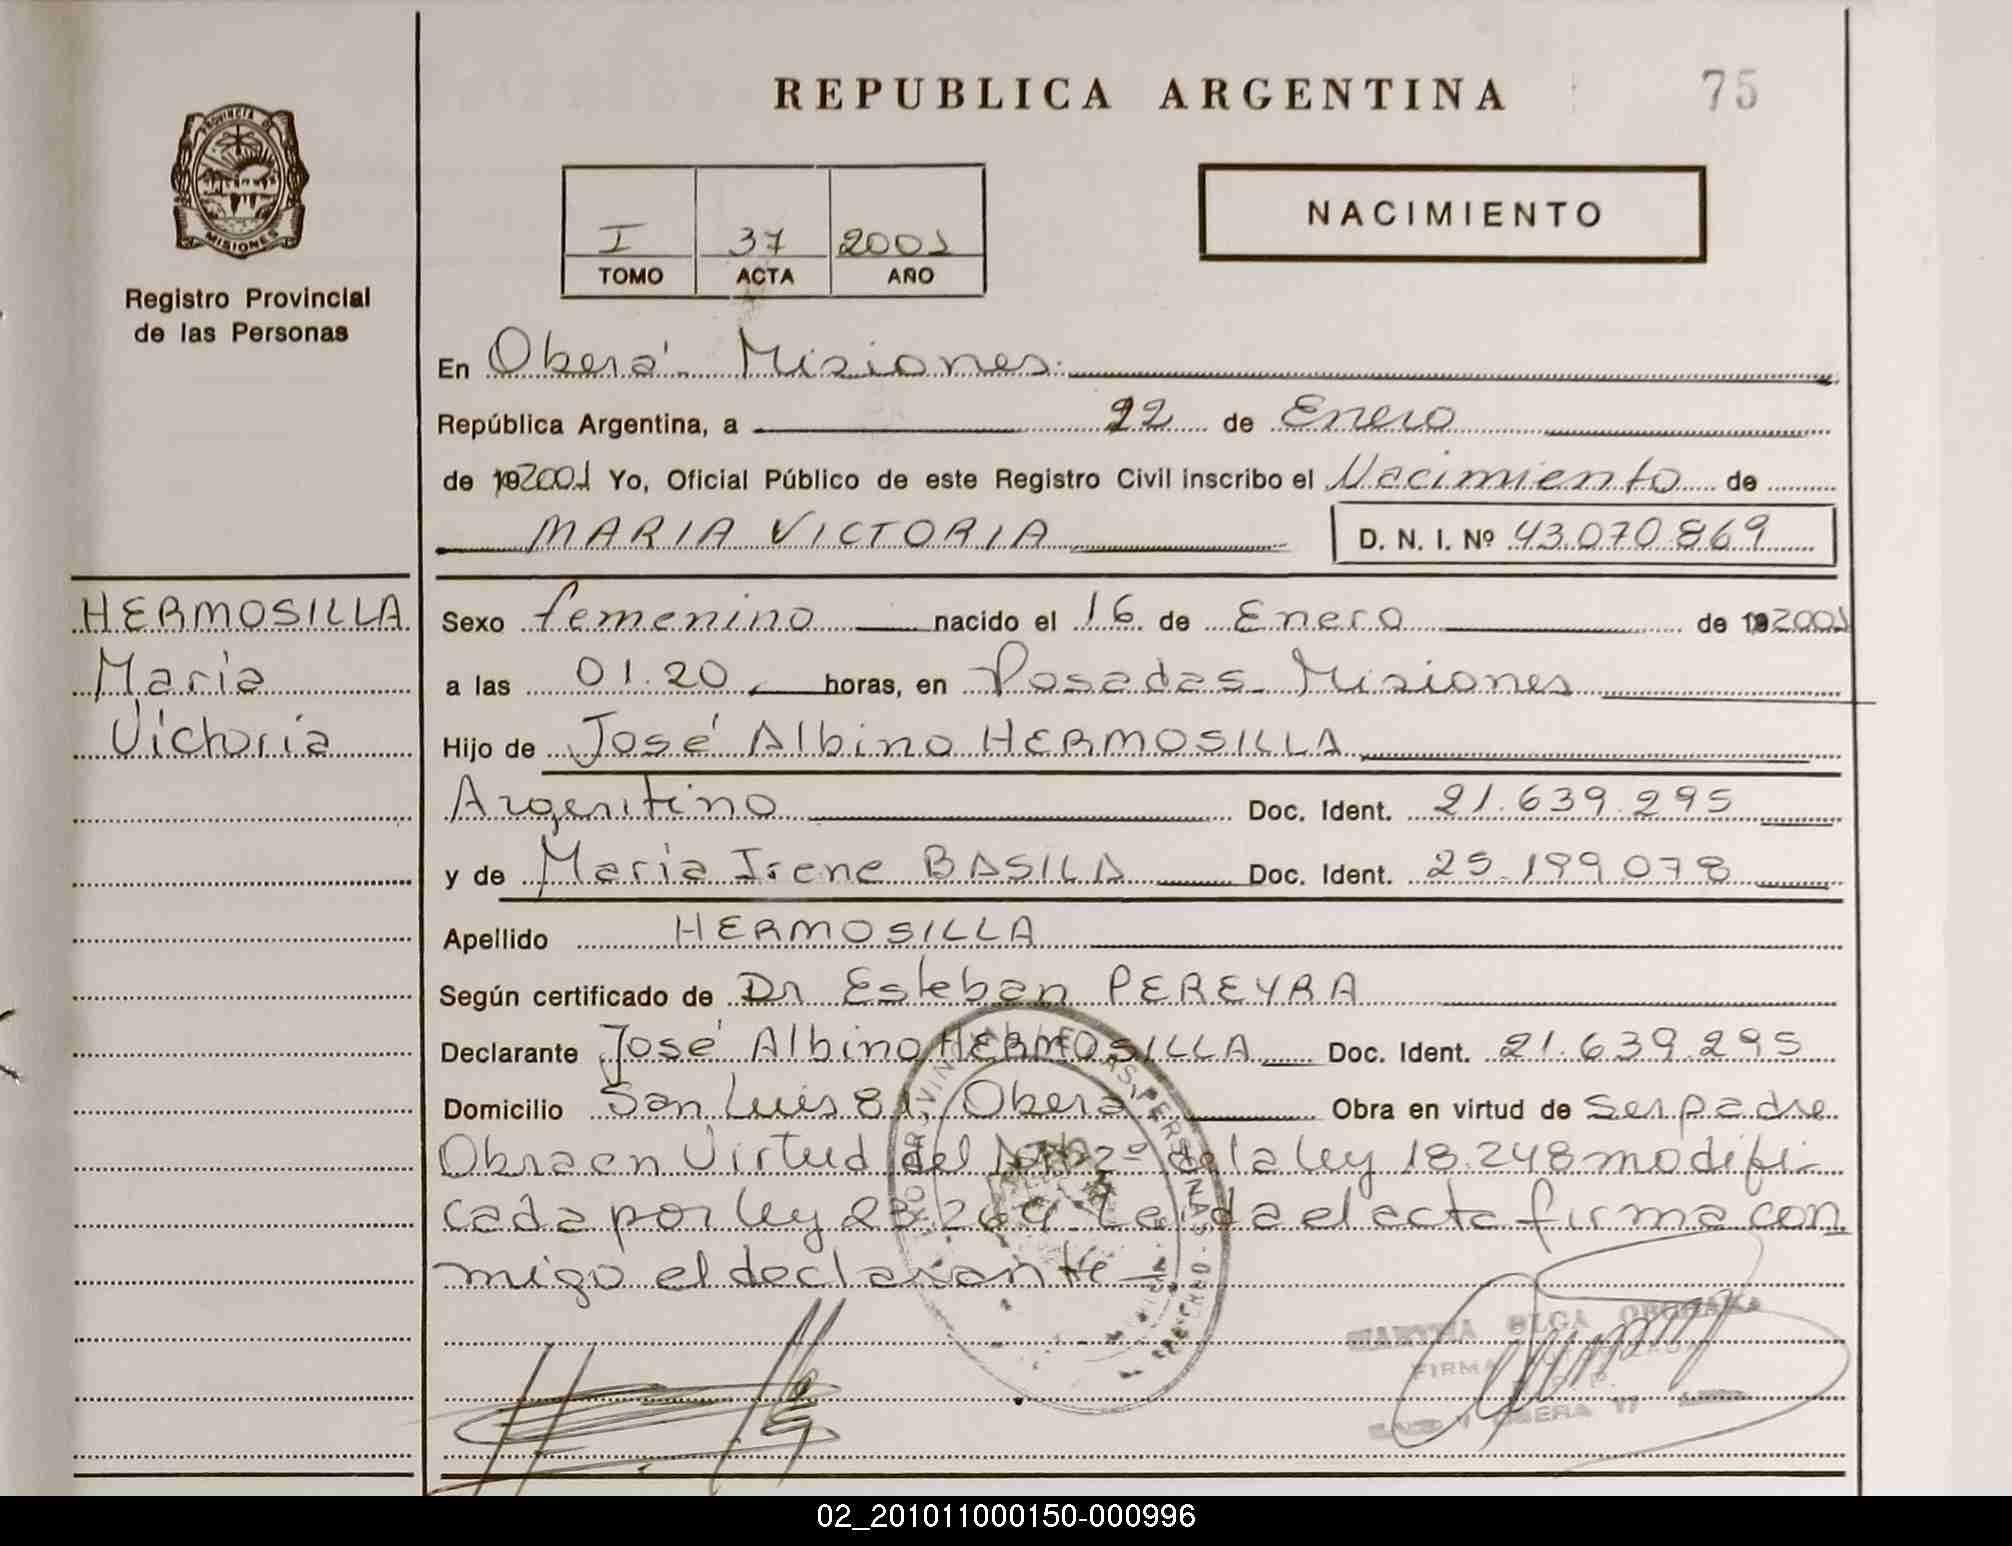 REPUBLICA ARGENTINA 75
PROVINCIA DE
MISIONES
Registro Provincial
de las Personas
I 37 2001
TOMO ACTA AÑO
NACIMIENTO
En Oberá - Misiones
República Argentina, a 22 de Enero
de 192001 Yo, Oficial Público de este Registro Civil inscribo el Nacimiento de
MARIA VICTORIA D. N. I. Nº 43.070.869
HERMOSILLA
Maria
Victoria
Sexo femenino nacido el 16 de Enero de 192001
a las 01.20 horas, en Posadas - Misiones
Hijo de José Albino HERMOSILLA
Argentino Doc. Ident. 21.639.295
y de Maria Irene BASILA Doc. Ident. 25.199.078
Apellido HERMOSILLA
Según certificado de Dr Esteban PEREYRA
Declarante José Albino HERMOSILLA Doc. Ident. 21.639.295
Domicilio San Luis 81, Oberá Obra en virtud de ser padre
Obra en Virtud del 2º de la ley 18.248 modifi-
cada por ley 23.264 - Leida el acta firma con
migo el declarante -
OLGA
FIRMA
OBERA
02_201011000150-000996